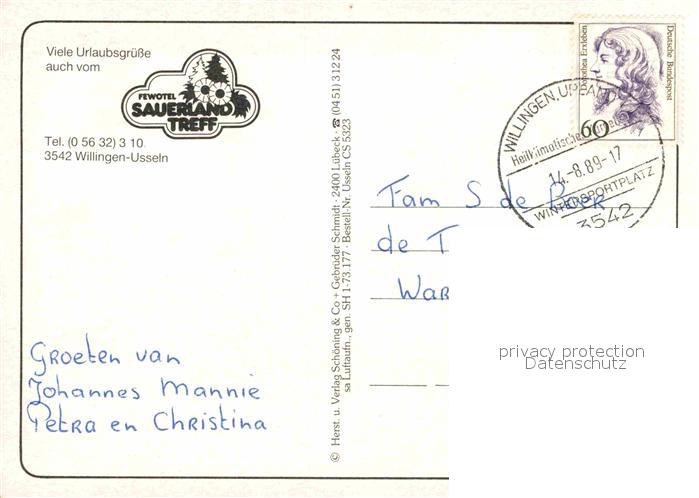 Viele Urlaubsgrüße
auch vom
FEWOTEL
SAUERLAND
TREFF
Tel. (0 56 32) 3 10
3542 Willingen-Usseln
© Herst. u. Verlag Schöning & Co + Gebrüder Schmidt · 2400 Lübeck · ☎ (04 51) 3 12 24
sa Luftaufn., gen. SH 1-73 177 · Bestell-Nr. Usseln CS 5323
Dorothea Erxleben
Deutsche Bundespost
60
WILLINGEN, UPLAND
Heilklimatischer
14.-8.89-17
WINTERSPORTPLATZ
3542
Fam S de Boer
de T
War
Groeten van
Johannes Mannie
Petra en Christina
privacy protection
Datenschutz